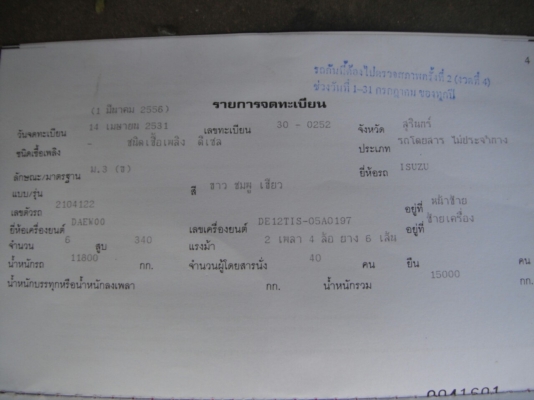 4
รถคันนี้ต้องไปตรวจสภาพครั้งที่ 2 (งวดที่ 4)
ช่วงวันที่ 1-31 กรกฎาคม ของทุกปี
(1 มีนาคม 2556)
รายการจดทะเบียน
วันจดทะเบียน 14 เมษายน 2531 เลขทะเบียน 30 - 0252 จังหวัด สุรินทร์
ชนิดเชื้อเพลิง - ชนิดเชื้อเพลิง ดีเซล ประเภท รถโดยสาร ไม่ประจำทาง
ลักษณะ/มาตรฐาน ม.3 (ข) ยี่ห้อรถ ISUZU
แบบ/รุ่น สี ขาว ชมพู เขียว
เลขตัวรถ 2104122 อยู่ที่ หน้าซ้าย
ยี่ห้อเครื่องยนต์ DAEWOO เลขเครื่องยนต์ DE12TIS-05A0197 อยู่ที่ ซ้ายเครื่อง
จำนวน 6 สูบ 340 แรงม้า 2 เพลา 4 ล้อ ยาง 6 เส้น
น้ำหนักรถ 11800 กก. จำนวนผู้โดยสารนั่ง 40 คน ยืน คน
น้ำหนักบรรทุกหรือน้ำหนักลงเพลา กก. น้ำหนักรวม 15000 กก.
0041601